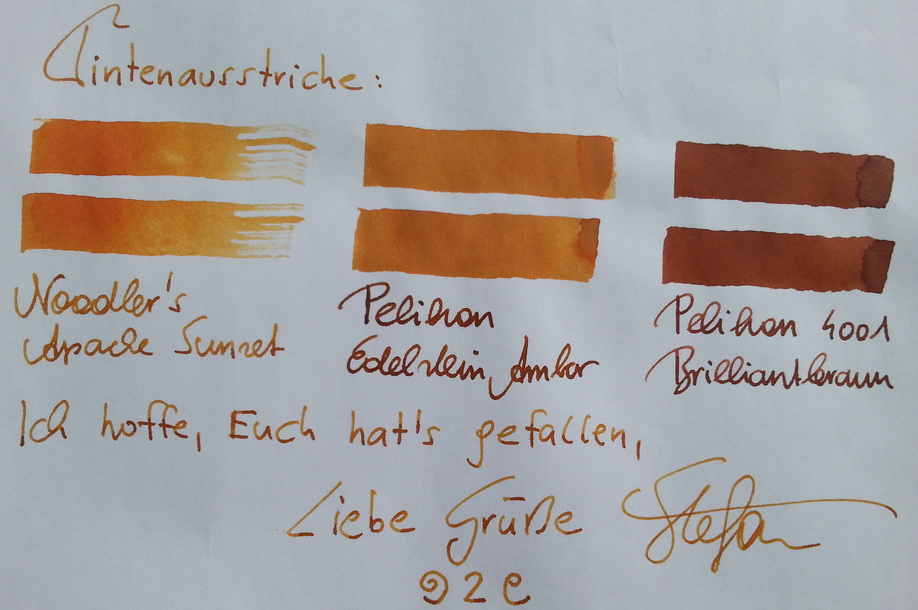 Tintenausstriche:
Noodler's
Apache Sunset
Pelikan
Edelstein, Amber
Pelikan 4001
Brilliantbraun
Ich hoffe, Euch hat's gefallen,
Liebe Grüße Stefan